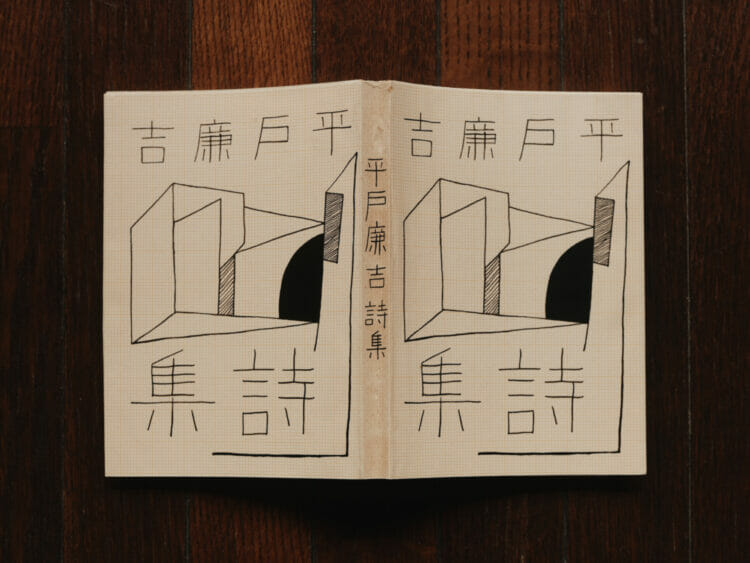 平戸廉吉
詩集
平戸廉吉 詩集
平戸廉吉
詩集